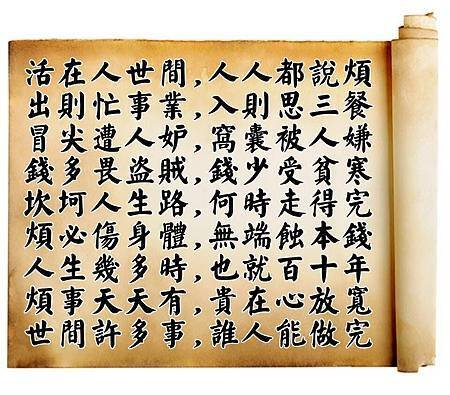 活在人世間,人人都說煩
出則忙事業,入則思三餐
冒尖遭人妒,窩囊被人嫌
錢多畏盜賊,錢少受貧寒
坎坷人生路,何時走得完
煩必傷身體,無端蝕本錢
人生幾多時,也就百十年
煩事天天有,貴在心放寬
世間許多事,誰人能做完